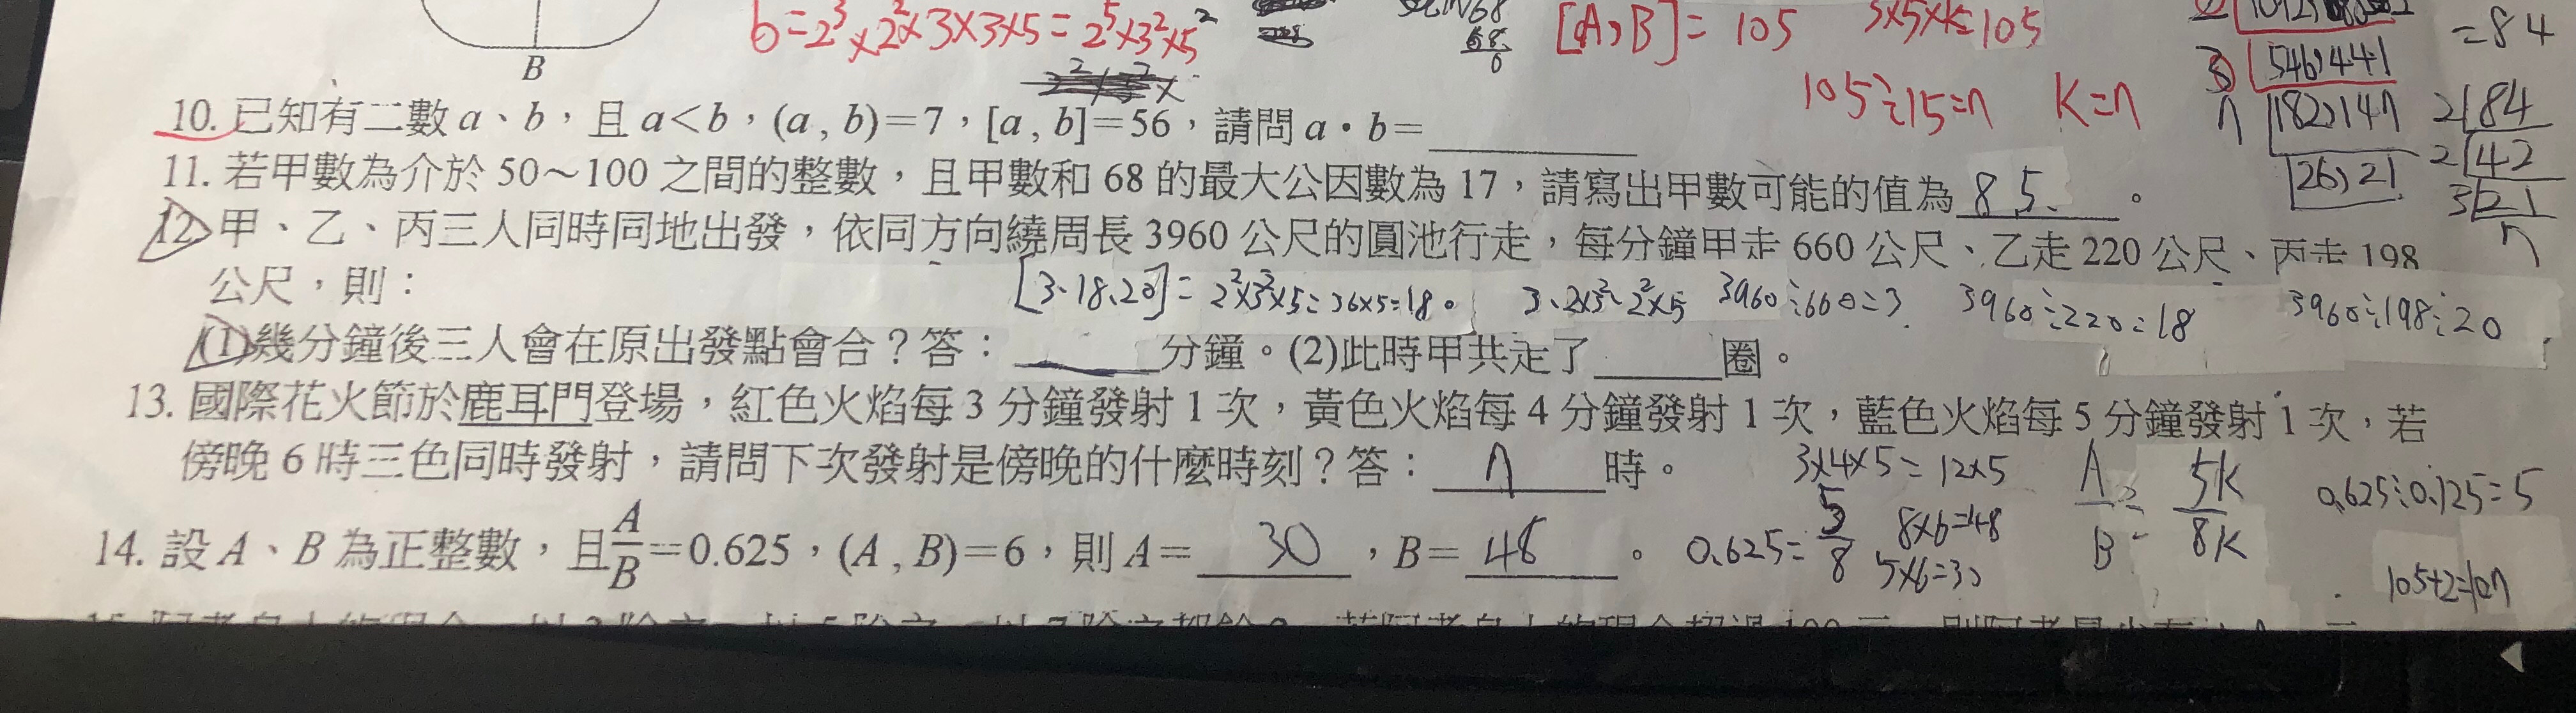 b=2³×2²×3×3×5=2⁵×3²×5²
[A,B]=105
3×5×k=105
=84
B
546,441
105÷15=7 K=7
10. 已知有二數 a、b，且 a<b，(a , b)=7，[a , b]=56，請問 a・b=
7 182,147
2 84
11. 若甲數為介於 50～100 之間的整數，且甲數和 68 的最大公因數為 17，請寫出甲數可能的值為 85 。
26,21
2 42
3 21
7
12. 甲、乙、丙三人同時同地出發，依同方向繞周長 3960 公尺的圓池行走，每分鐘甲走 660 公尺、乙走 220 公尺、丙走 198
公尺，則：
[3、18、20]=2²×3²×5=36×5=180 3、2×3²、2²×5 3960÷660=3 3960÷220=18 3960÷198=20
(1)幾分鐘後三人會在原出發點會合？答： 分鐘。(2)此時甲共走了 圈。
13. 國際花火節於鹿耳門登場，紅色火焰每 3 分鐘發射 1 次，黃色火焰每 4 分鐘發射 1 次，藍色火焰每 5 分鐘發射 1 次，若
傍晚 6 時三色同時發射，請問下次發射是傍晚的什麼時刻？答： 7 時。
3×4×5=12×5
A/B=5K/8K
0.625÷0.125=5
14. 設 A、B 為正整數，且 A/B=0.625，(A , B)=6，則 A= 30 ，B= 48 。
0.625=5/8
8×6=48
5×6=30
105+2=107